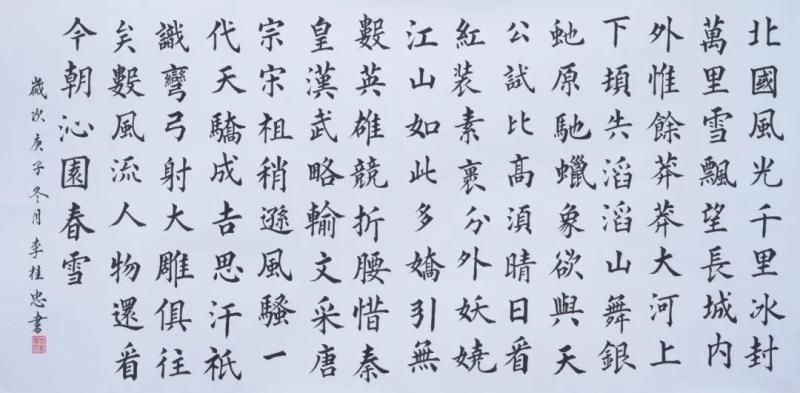 北國風光千里冰封
萬里雪飄望長城內
外惟餘莽莽大河上
下頃失滔滔山舞銀
虵原馳蠟象欲與天
公試比高湏晴日看
紅裝素裹分外妖嬈
江山如此多嬌引無
數英雄競折腰惜秦
皇漢武略輸文采唐
宗宋祖稍遜風騷一
代天驕成吉思汗祇
識彎弓射大雕俱往
矣數風流人物還看
今朝沁園春雪
歲次庚子冬月李桂忠書